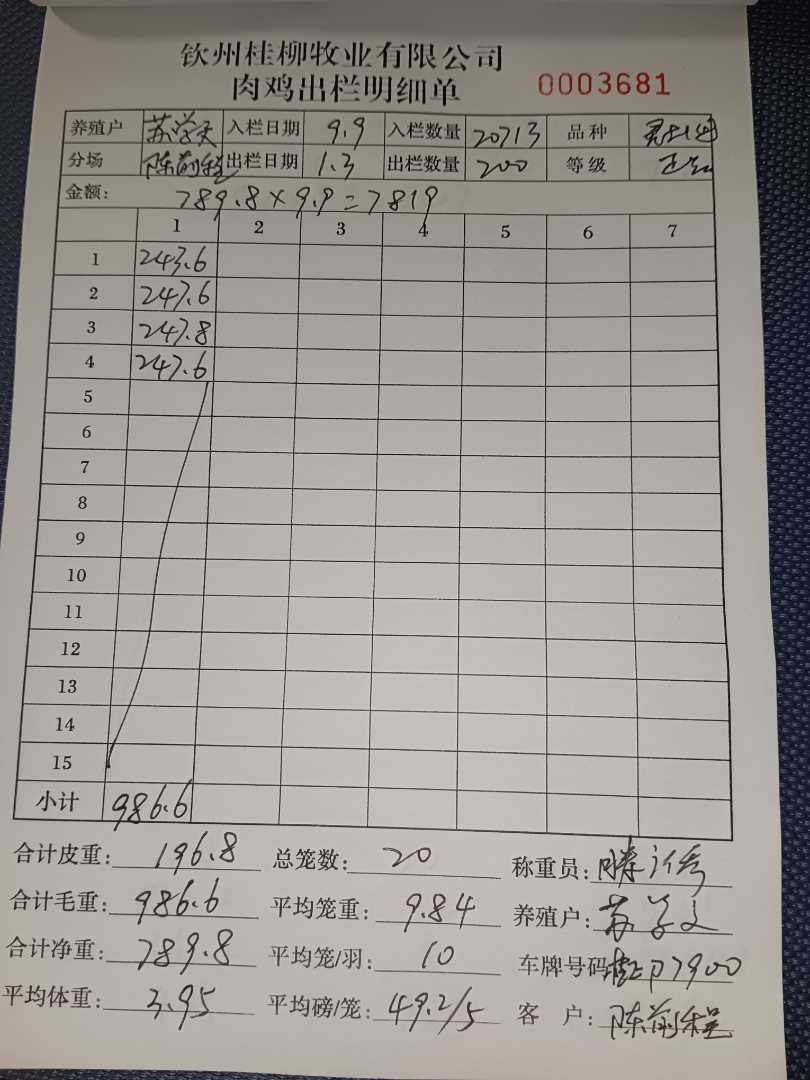 钦州桂柳牧业有限公司
肉鸡出栏明细单 0003681
养殖户 苏学文 入栏日期 9.9 入栏数量 20713 品种
分场 陈前程 出栏日期 1.3 出栏数量 200 等级 正
金额: 789.8×9.9=7819
1 2 3 4 5 6 7
1 243.6
2 247.6
3 247.8
4 247.6
5
6
7
8
9
10
11
12
13
14
15
小计 986.6
合计皮重: 196.8 总笼数: 20 称重员:
合计毛重: 986.6 平均笼重: 9.84 养殖户: 苏学文
合计净重: 789.8 平均笼/羽: 10 车牌号码: P7900
平均体重: 3.95 平均磅/笼: 49.2/5 客 户: 陈前程